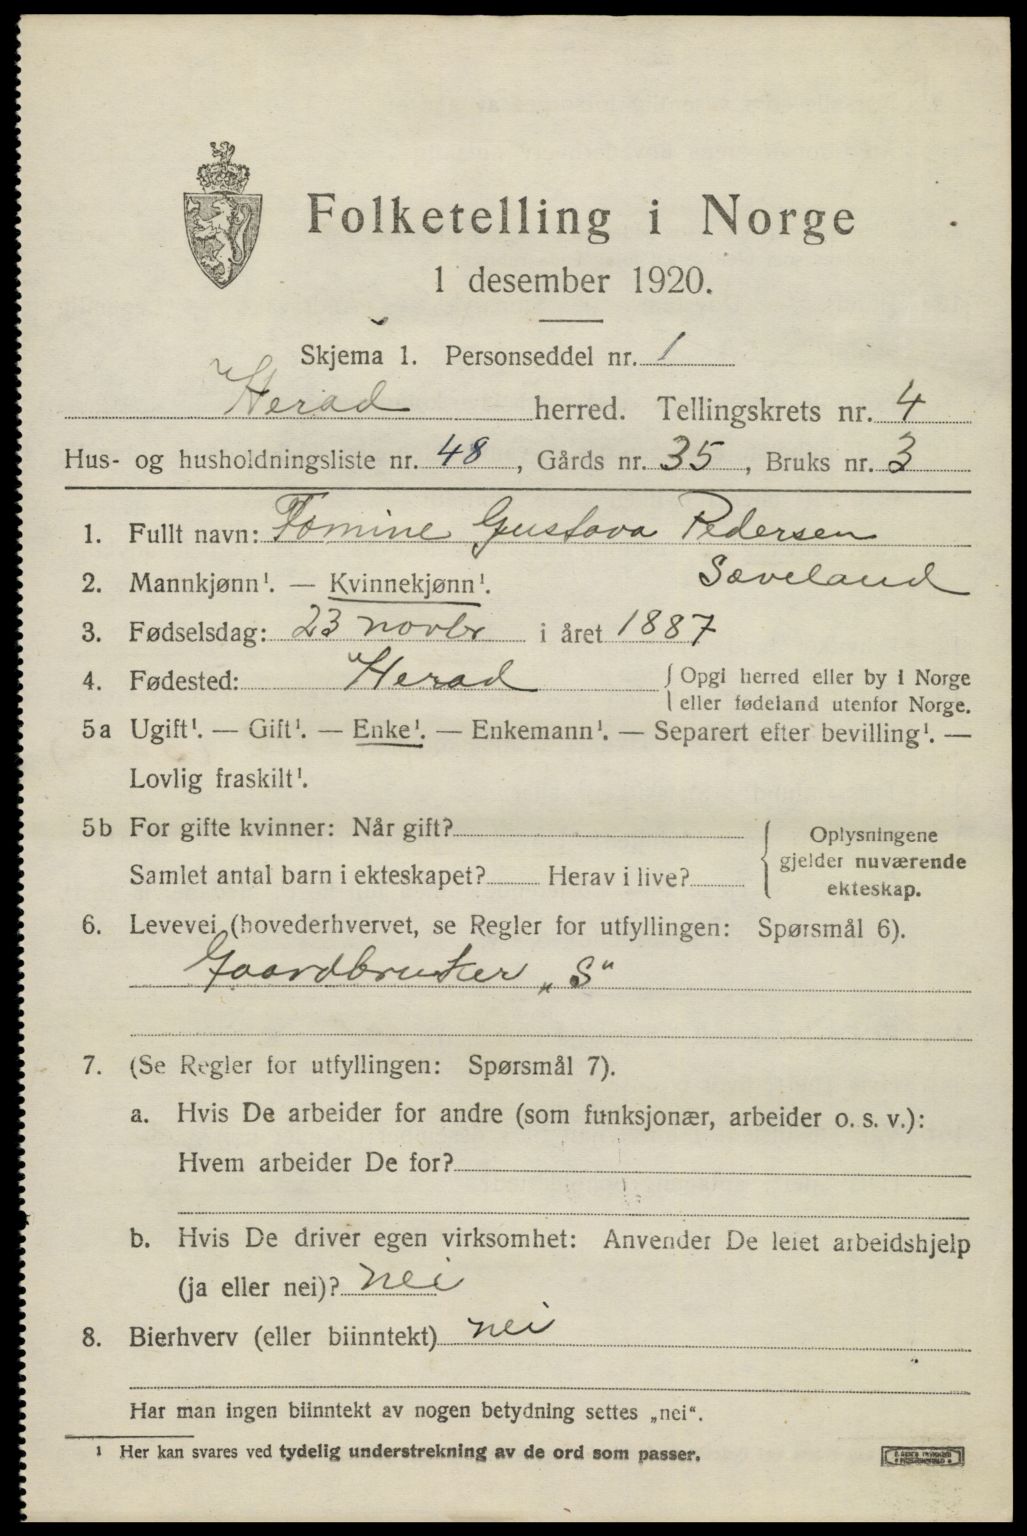 Folketelling i Norge
1 desember 1920.
Skjema 1. Personseddel nr. 1
Herad herred. Tellingskrets nr. 4
Hus- og husholdningsliste nr. 48, Gårds nr. 35, Bruks nr. 3
1. Fullt navn: Tomine Gustava Pedersen
Sæveland
2. Mannkjønn¹. — Kvinnekjønn¹.
3. Fødselsdag: 23 novbr i året 1887
4. Fødested: Herad { Opgi herred eller by i Norge
eller fødeland utenfor Norge.
5a Ugift¹. — Gift¹. — Enke¹. — Enkemann¹. — Separert efter bevilling¹. —
Lovlig fraskilt¹.
5b For gifte kvinner: Når gift?
Samlet antal barn i ekteskapet? Herav i live?
{ Oplysningene
gjelder nuværende
ekteskap.
6. Levevei (hovederhvervet, se Regler for utfyllingen: Spørsmål 6).
Gaardbruker „S“
7. (Se Regler for utfyllingen: Spørsmål 7).
a. Hvis De arbeider for andre (som funksjonær, arbeider o. s. v.):
Hvem arbeider De for?
b. Hvis De driver egen virksomhet: Anvender De leiet arbeidshjelp
(ja eller nei)? nei
8. Bierhverv (eller biinntekt) nei
Har man ingen biinntekt av nogen betydning settes „nei“.
¹ Her kan svares ved tydelig understrekning av de ord som passer.